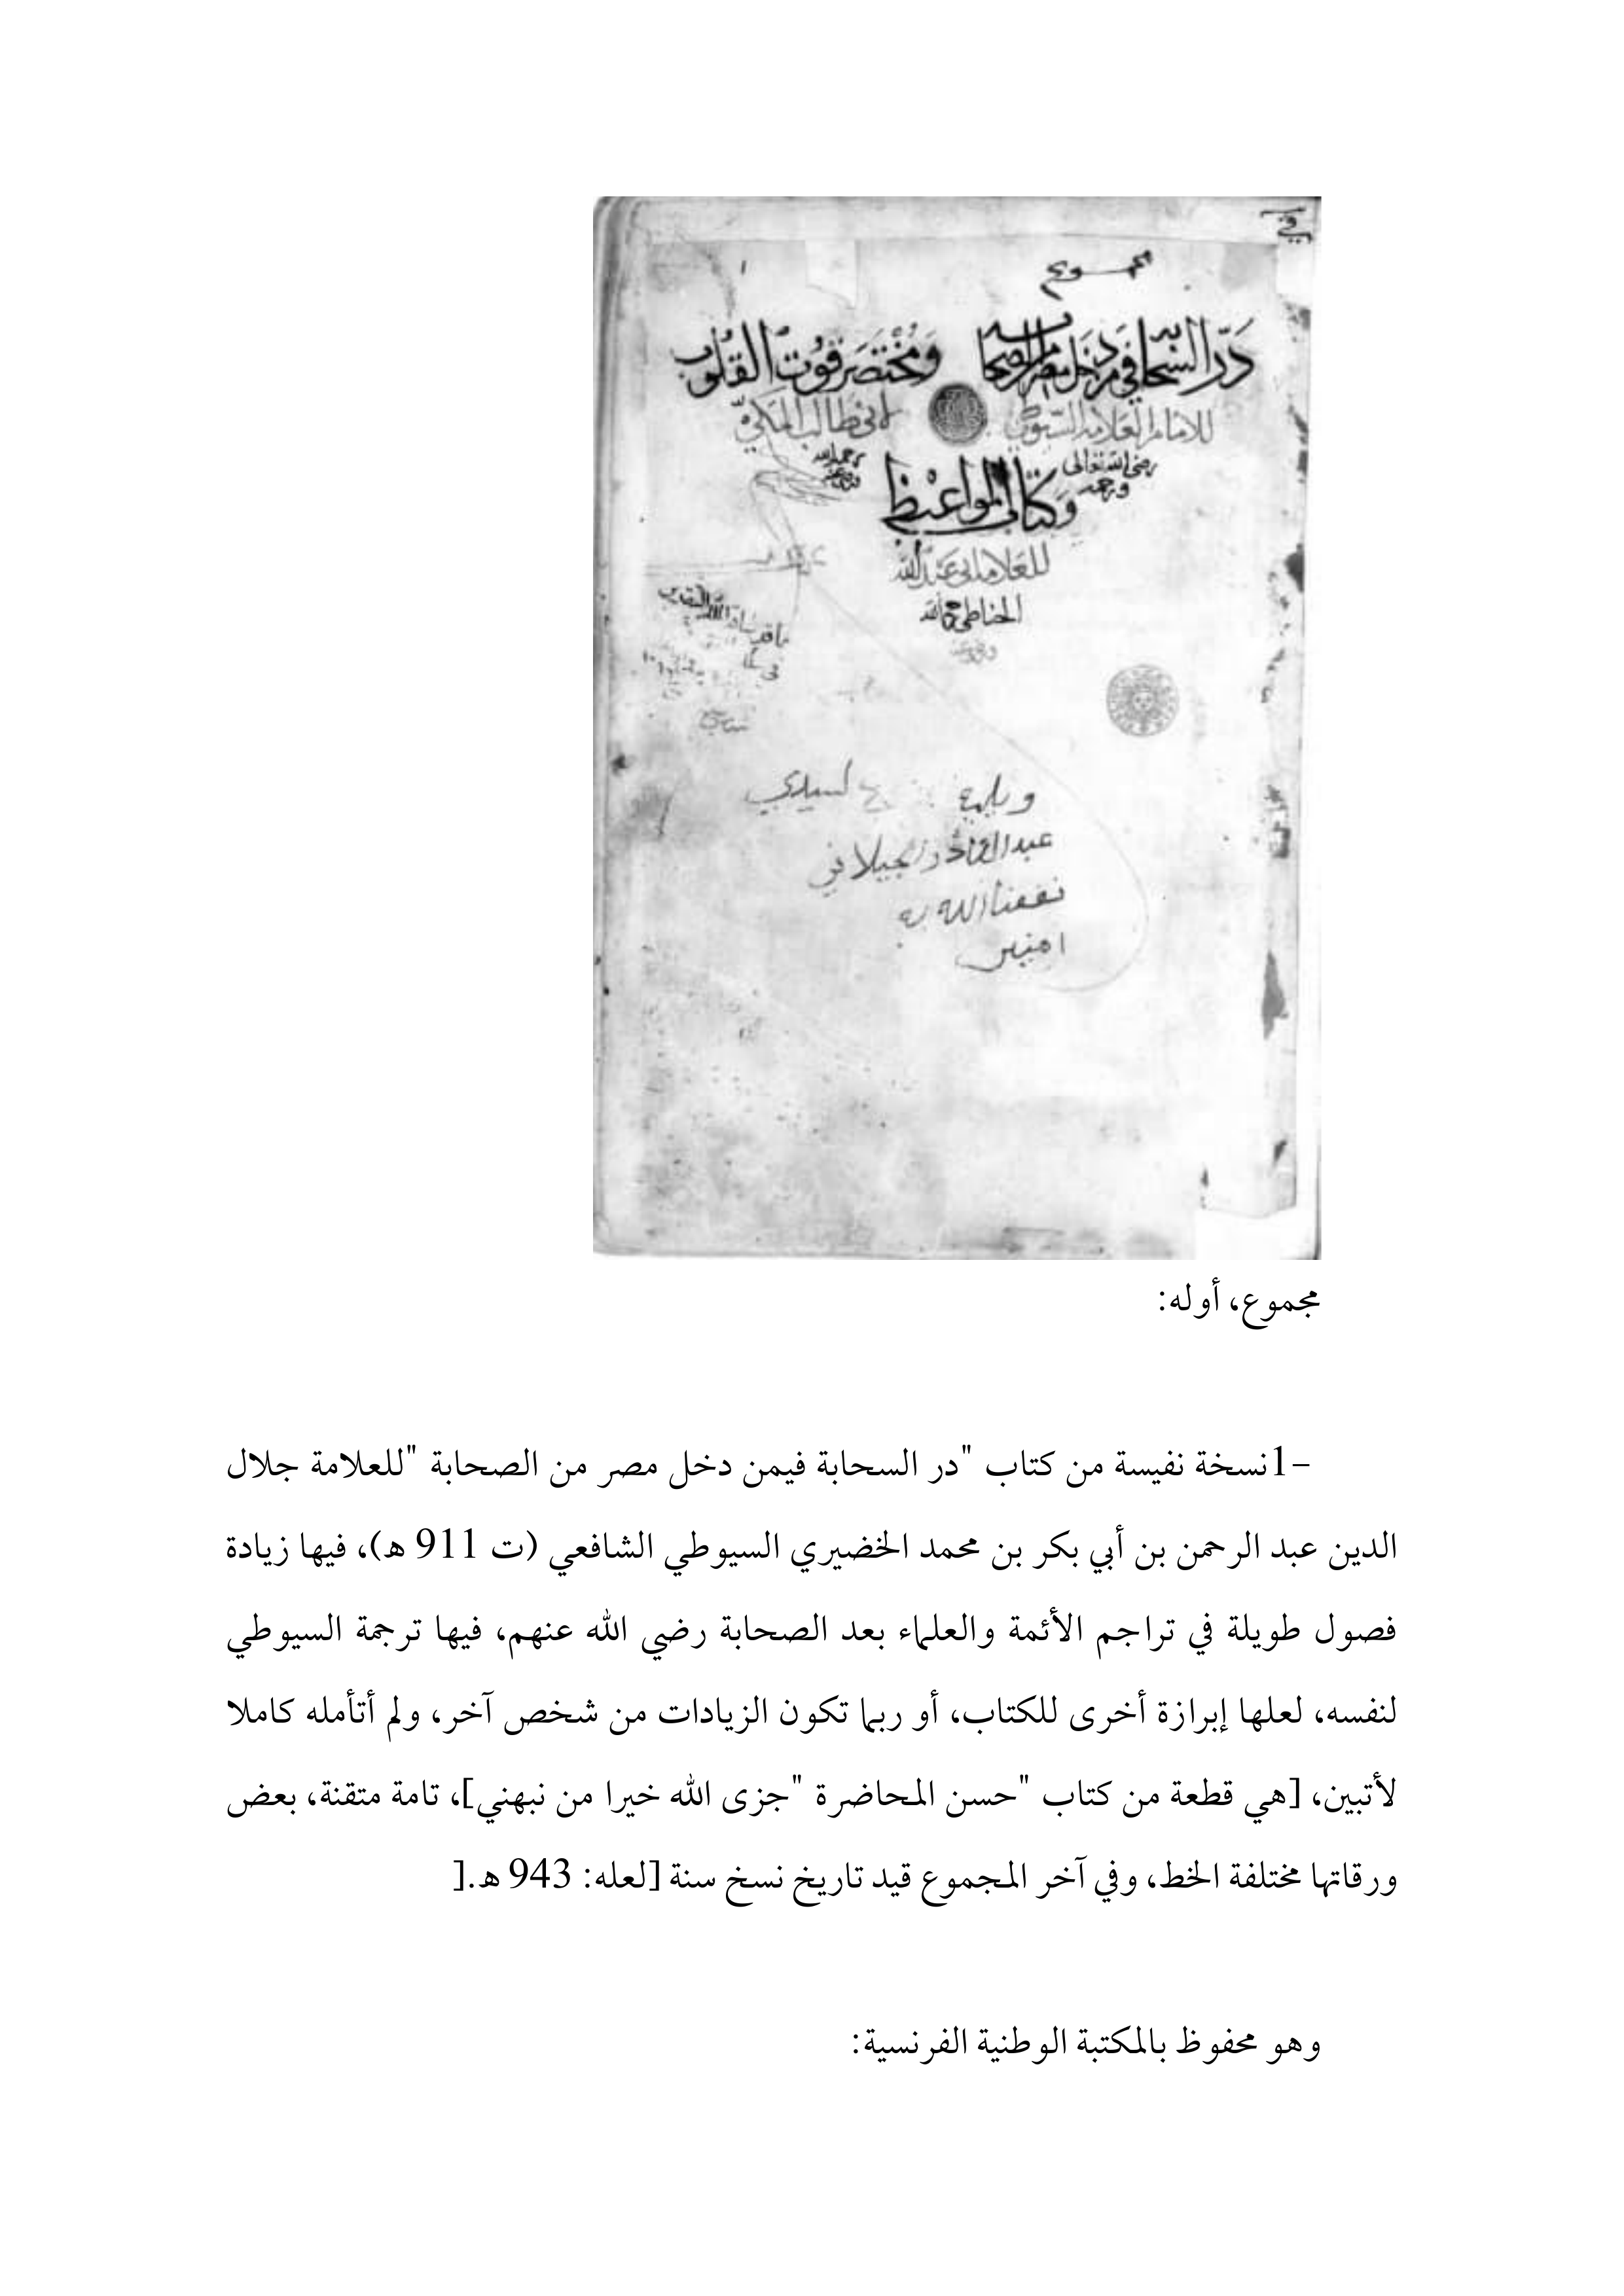 مجموع
درّ السحابه في من دخل مصر من الصحابه ومختصر قوت القلوب
للامام العلامه السيوطي لابي طالب المكي
رضي الله تعالى ورحمه رحمه الله
وكتاب المواعظ
للعلامه ابي عبد الله
الحناطي رحمه الله
ويليه لسيدي
عبد القادر الجيلاني
نفعنا الله به
امين
مجموع، أوله:
-1نسخة نفيسة من كتاب "در السحابة فيمن دخل مصر من الصحابة "للعلامة جلال
الدين عبد الرحمن بن أبي بكر بن محمد الخضيري السيوطي الشافعي (ت 911 ه)، فيها زيادة
فصول طويلة في تراجم الأئمة والعلماء بعد الصحابة رضي الله عنهم، فيها ترجمة السيوطي
لنفسه، لعلها إبرازة أخرى للكتاب، أو ربما تكون الزيادات من شخص آخر، ولم أتأمله كاملا
لأتبين، [هي قطعة من كتاب "حسن المحاضرة "جزى الله خيرا من نبهني]، تامة متقنة، بعض
ورقاتها مختلفة الخط، وفي آخر المجموع قيد تاريخ نسخ سنة [لعله: 943 ه.[
وهو محفوظ بالمكتبة الوطنية الفرنسية: